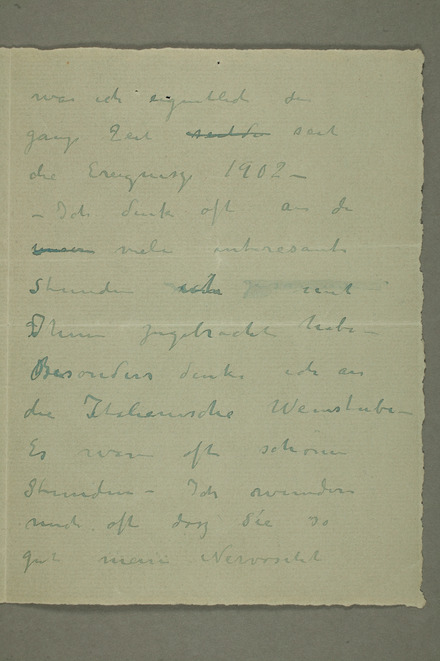 was ich eigentlich die
ganze Zeit seit
die Ereignisze 1902 –
– Ich denk oft an die
viele interesante
Stunden mit
Ihnen zugebracht habe –
Besonders denke ich an
die Italienische Weinstuben
Es waren oft schöne
Stunden – Ich wundere
mich oft dasz Sie so
gut meine Nervosität